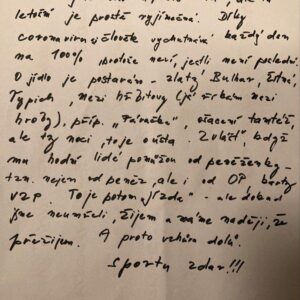 letošní je prostě výjimečná. Díky
coronaviru si člověk vychutnává každý den
na 100% protože neví, jestli není poslední.
O jídlo je postaráno - zlatý Bulhar, Žitná,
Trpich, mezi hřbitovy (je srkám mezi
hroby), příp. "Farářka", otáčení tamtéž,
ale ty noci, to je očista. Zvlášť, když
mu hodní lidé pomůžou od peněženky -
tzn. nejen od peněz, ale i od OP, karty
VZP. To je potom jízda - ale dokud
jsme neumřeli, žijem a máme naději, že
přežijem. A proto vzhůru dolů.
Sportu zdar!!!